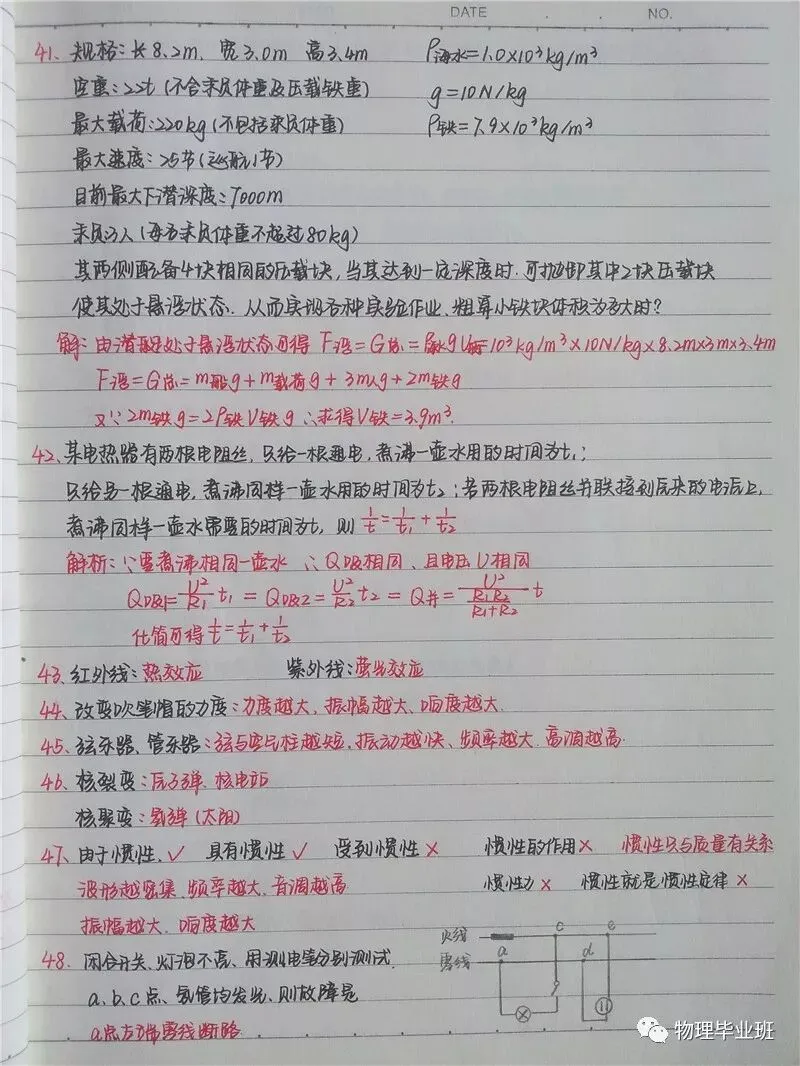 DATE NO.
41、规格：长8.2m，宽3.0m 高3.4m ρ海水=1.0×10³kg/m³
空重：22t（不含乘员体重及压载铁重） g=10N/kg
最大载荷：220kg（不包括乘员体重） ρ铁=7.9×10³kg/m³
最大速度：25节（巡航1节）
目前最大下潜深度：7000m
乘员3人（每名乘员体重不超过80kg）
其两侧配备4块相同的压载块，当其达到一定深度时，可抛卸其中2块压载块
使其处于悬浮状态，从而实现各种实验作业，粗算小铁块体积为多大时？
解：由潜艇处于悬浮状态可得 F浮=G总=ρ水gV排=10³kg/m³×10N/kg×8.2m×3m×3.4m
F浮=G总=m船g+m载荷g+3m人g+2m铁g
又∵2m铁g=2ρ铁V铁g ∴求得V铁=3.9m³.
42、某电热器有两根电阻丝，只给一根通电，煮沸一壶水用的时间为t₁；
只给另一根通电，煮沸同样一壶水用的时间为t₂；若两根电阻丝并联接到原来的电源上，
煮沸同样一壶水需要的时间为t，则 1/t=1/t₁+1/t₂
解析：∵要煮沸相同一壶水 ∴Q吸相同、且电压U相同
Q吸1=U²/R₁ t₁ = Q吸2=U²/R₂ t₂ = Q并=U²/(R₁R₂/(R₁+R₂)) t
化简可得1/t=1/t₁+1/t₂
43、红外线：热效应 紫外线：荧光效应
44、改变吹笔帽的力度：力度越大、振幅越大、响度越大
45、弦乐器、管乐器：弦与空气柱越短，振动越快、频率越大 高调越高
46、核裂变：原子弹 核电站
核聚变：氢弹（太阳）
47、由于惯性，✓ 具有惯性✓ 受到惯性× 惯性的作用× 惯性只与质量有关系
波形越密集、频率越大、音调越高 惯性力× 惯性就是惯性定律×
振幅越大、响度越大
48、闭合开关、灯泡不亮、用测电笔分别测试
a、b、c点、氖管均发光、则故障是
a点左端零线断路
火线 c e
零线 a d
物理毕业班